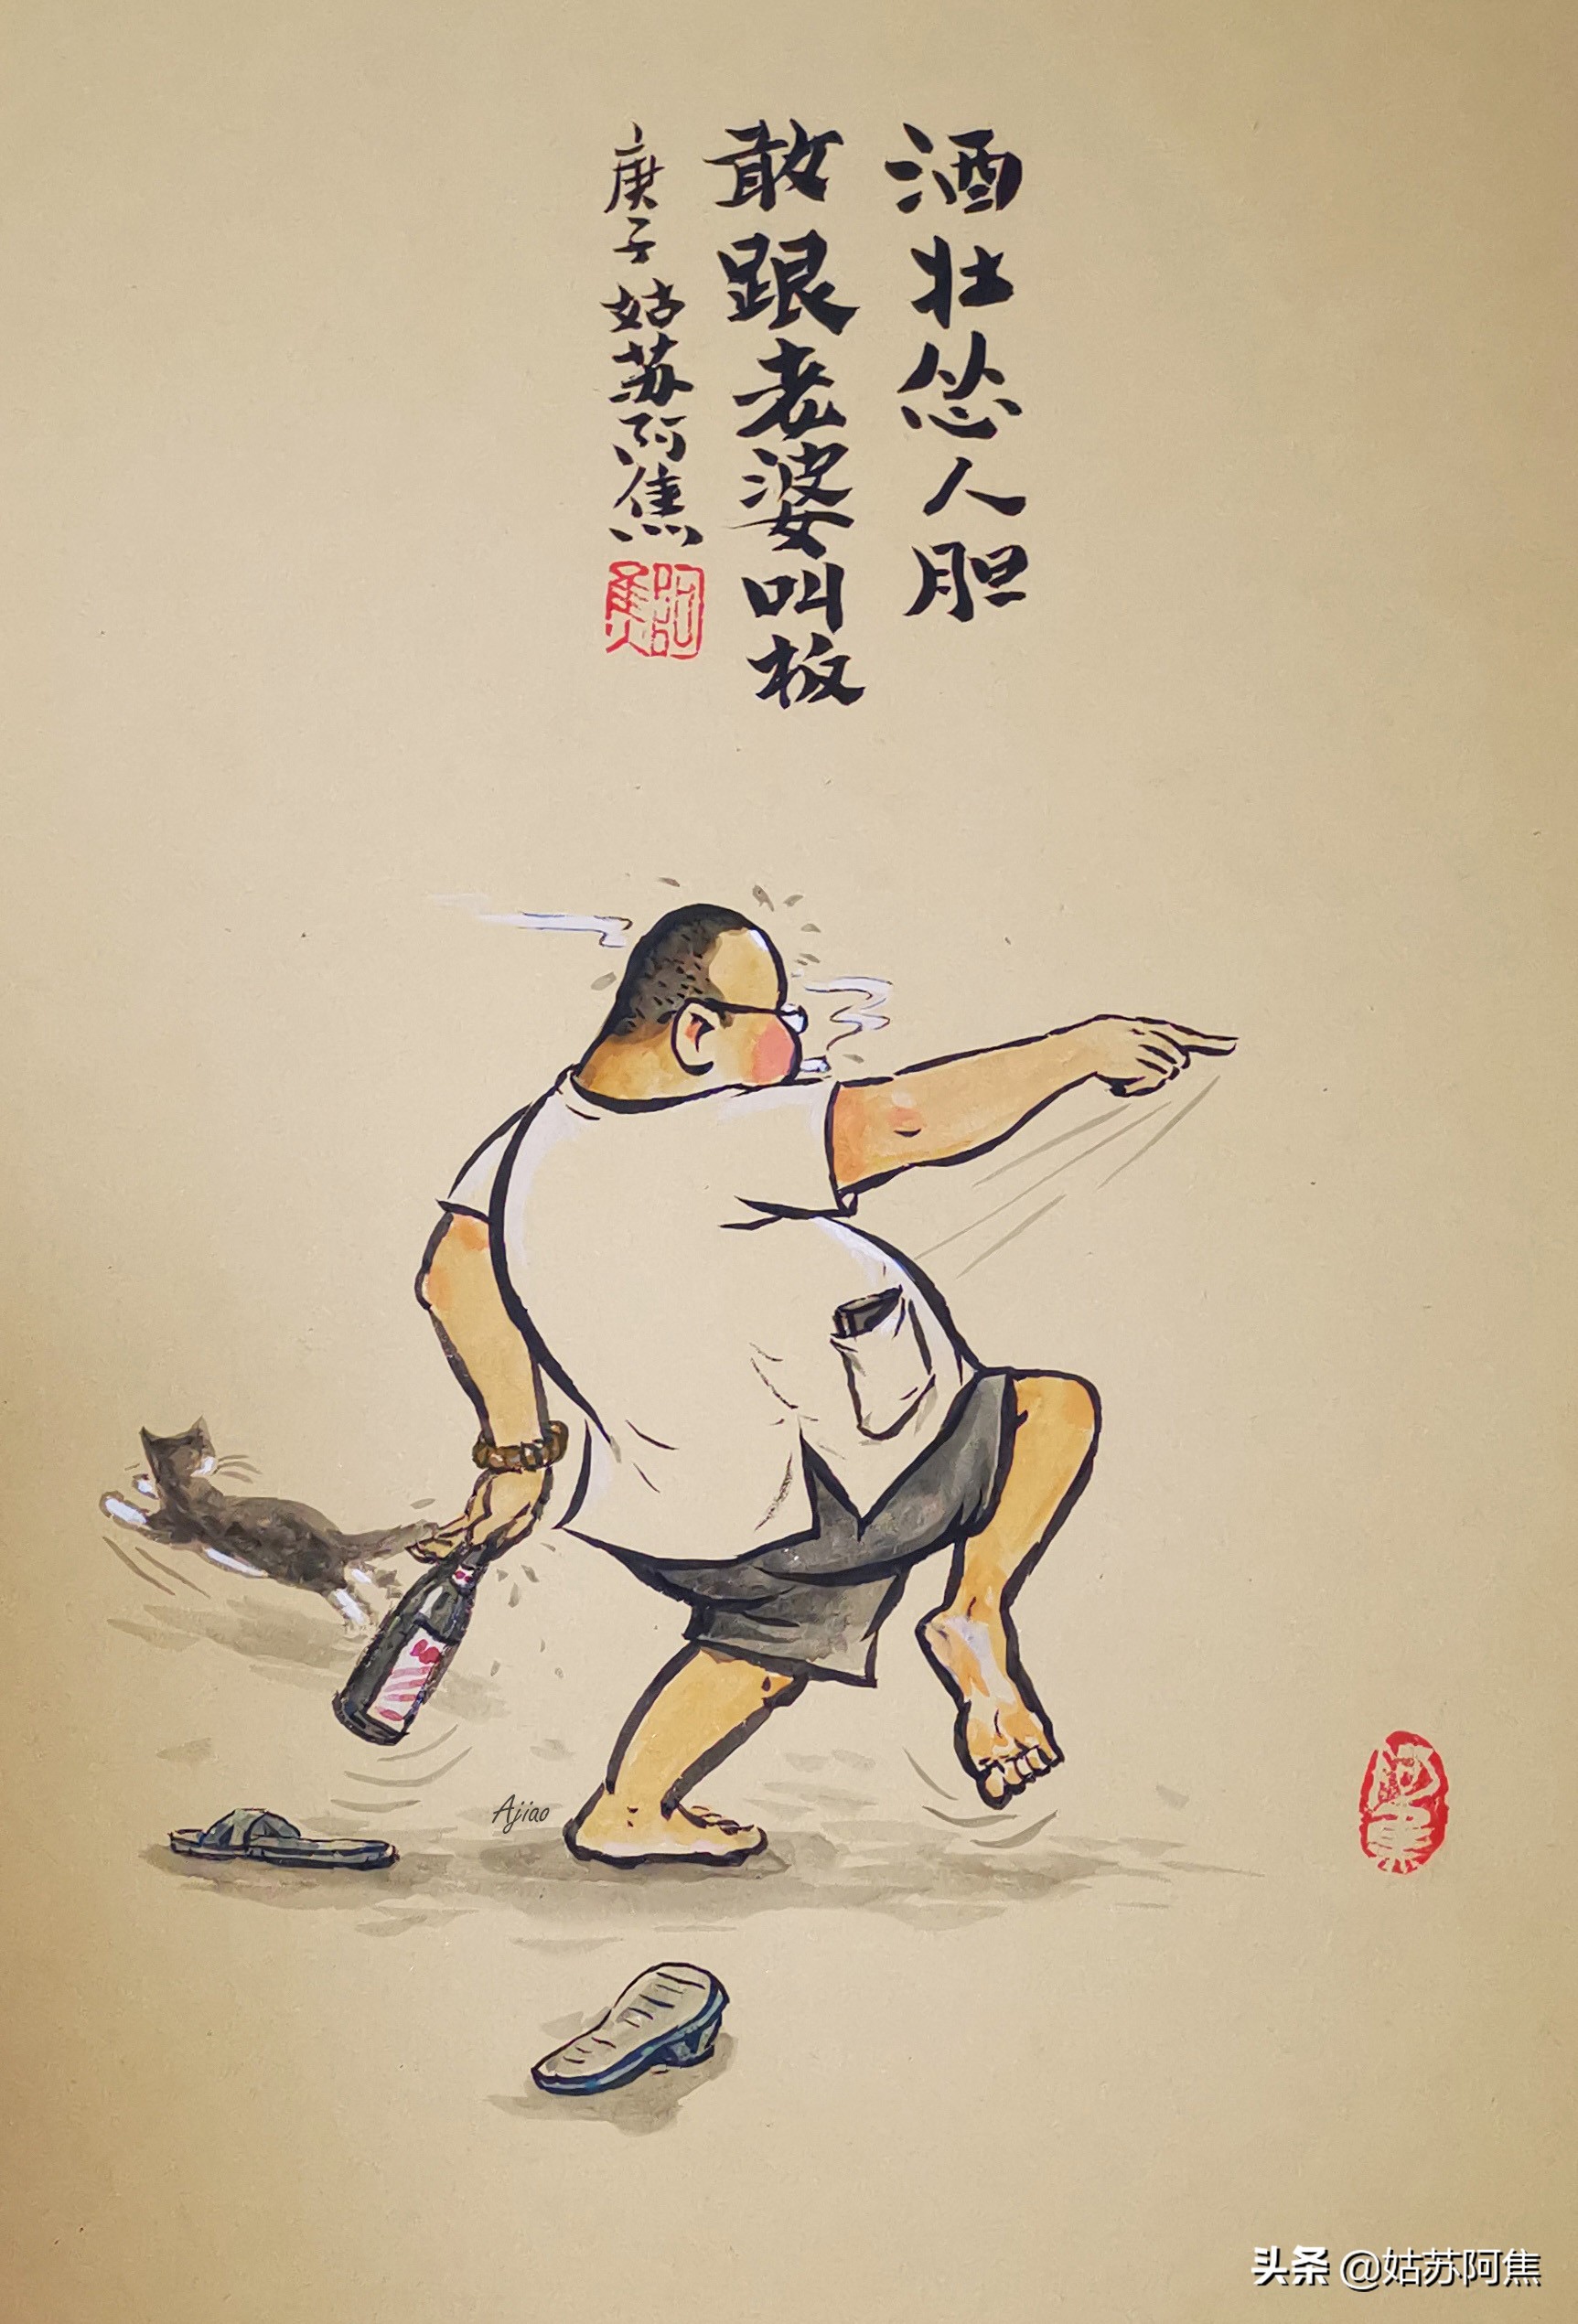 酒壮怂人胆
敢跟老婆叫板
庚子 姑苏阿焦
阿焦
Ajiao
阿焦
头条 @姑苏阿焦